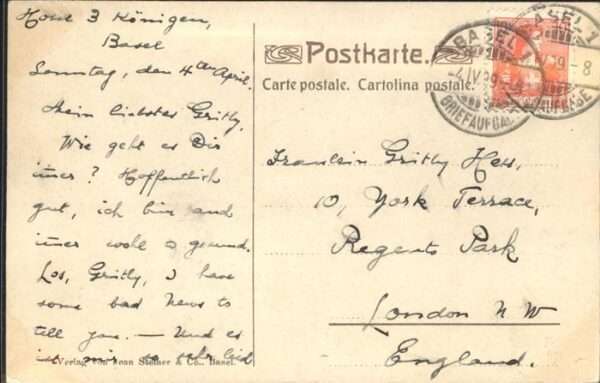 Hotel 3 Königen,
Basel
Sonntag, den 4ten April.
Mein liebster Gritly,
Wie geht es Dir
immer? Hoffentlich
gut, ich bin and
immer wohl & gesund.
Los, Gritly, I have
some bad news to
tell you. — Und es
ist mir so sehr leid
Verlag von Jean Steiner & Co., Basel.
Postkarte.
Carte postale. Cartolina postale.
BASEL
-4.IV.09
BRIEFAUFGABE
BASEL 1
IV.09-8
Fraulein Gritly Hess,
10, York Terrace,
Regents Park
London N W
England.